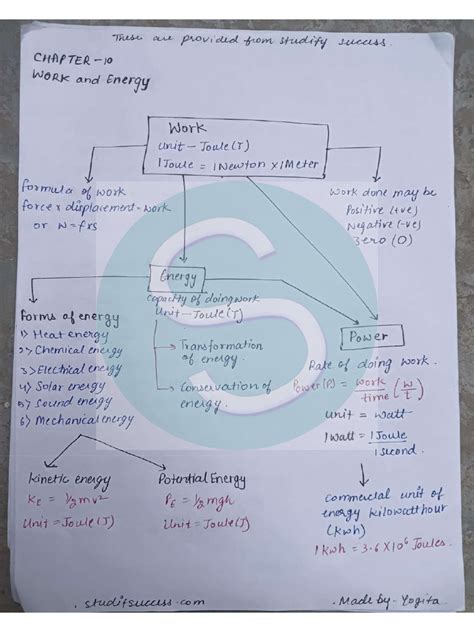 These are provided from studify success.
CHAPTER-10
WORK and Energy
Work
Unit - Joule (J)
1 Joule = 1 Newton x 1 Meter
formula of work
force x displacement = work
or W = fxs
Work done may be
Positive (+ve)
Negative (-ve)
Zero (0)
Energy
Capacity of doing work
Unit - Joule (J)
Forms of energy
1) Heat energy
2) Chemical energy
3) Electrical energy
4) Solar energy
5) Sound energy
6) Mechanical energy
→ Transformation
of energy.
→ Conservation of
energy.
Power
Rate of doing work.
Power (P) = work/time (W/t)
Unit = Watt
1 Watt = 1 Joule/1 second.
kinetic energy
KE = 1/2 mv²
Unit = Joule (J)
Potential Energy
PE = 1/2 mgh
Unit = Joule (J)
Commercial unit of
energy kilowatt hour
(kwh)
1 kwh = 3.6 X 10⁶ Joules.
. studifsuccess.com
. Made by - Yogita